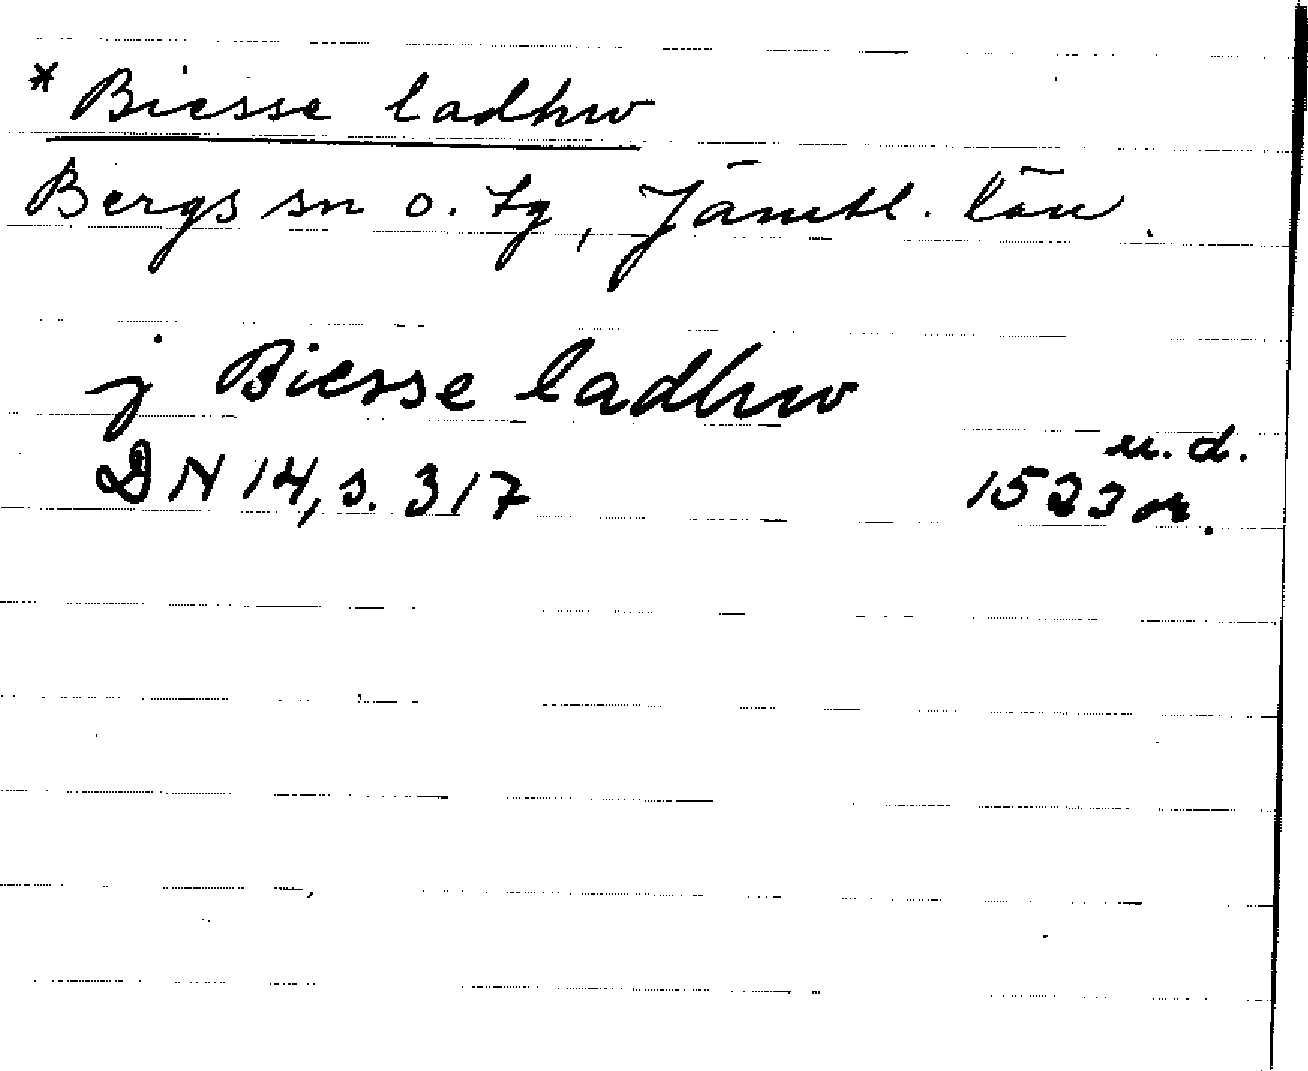 * Biesse ladhw
Bergs sn o. tg, Jämtl. län.
j Biesse ladhw
u. d.
DN 14, s. 317 1523 or.